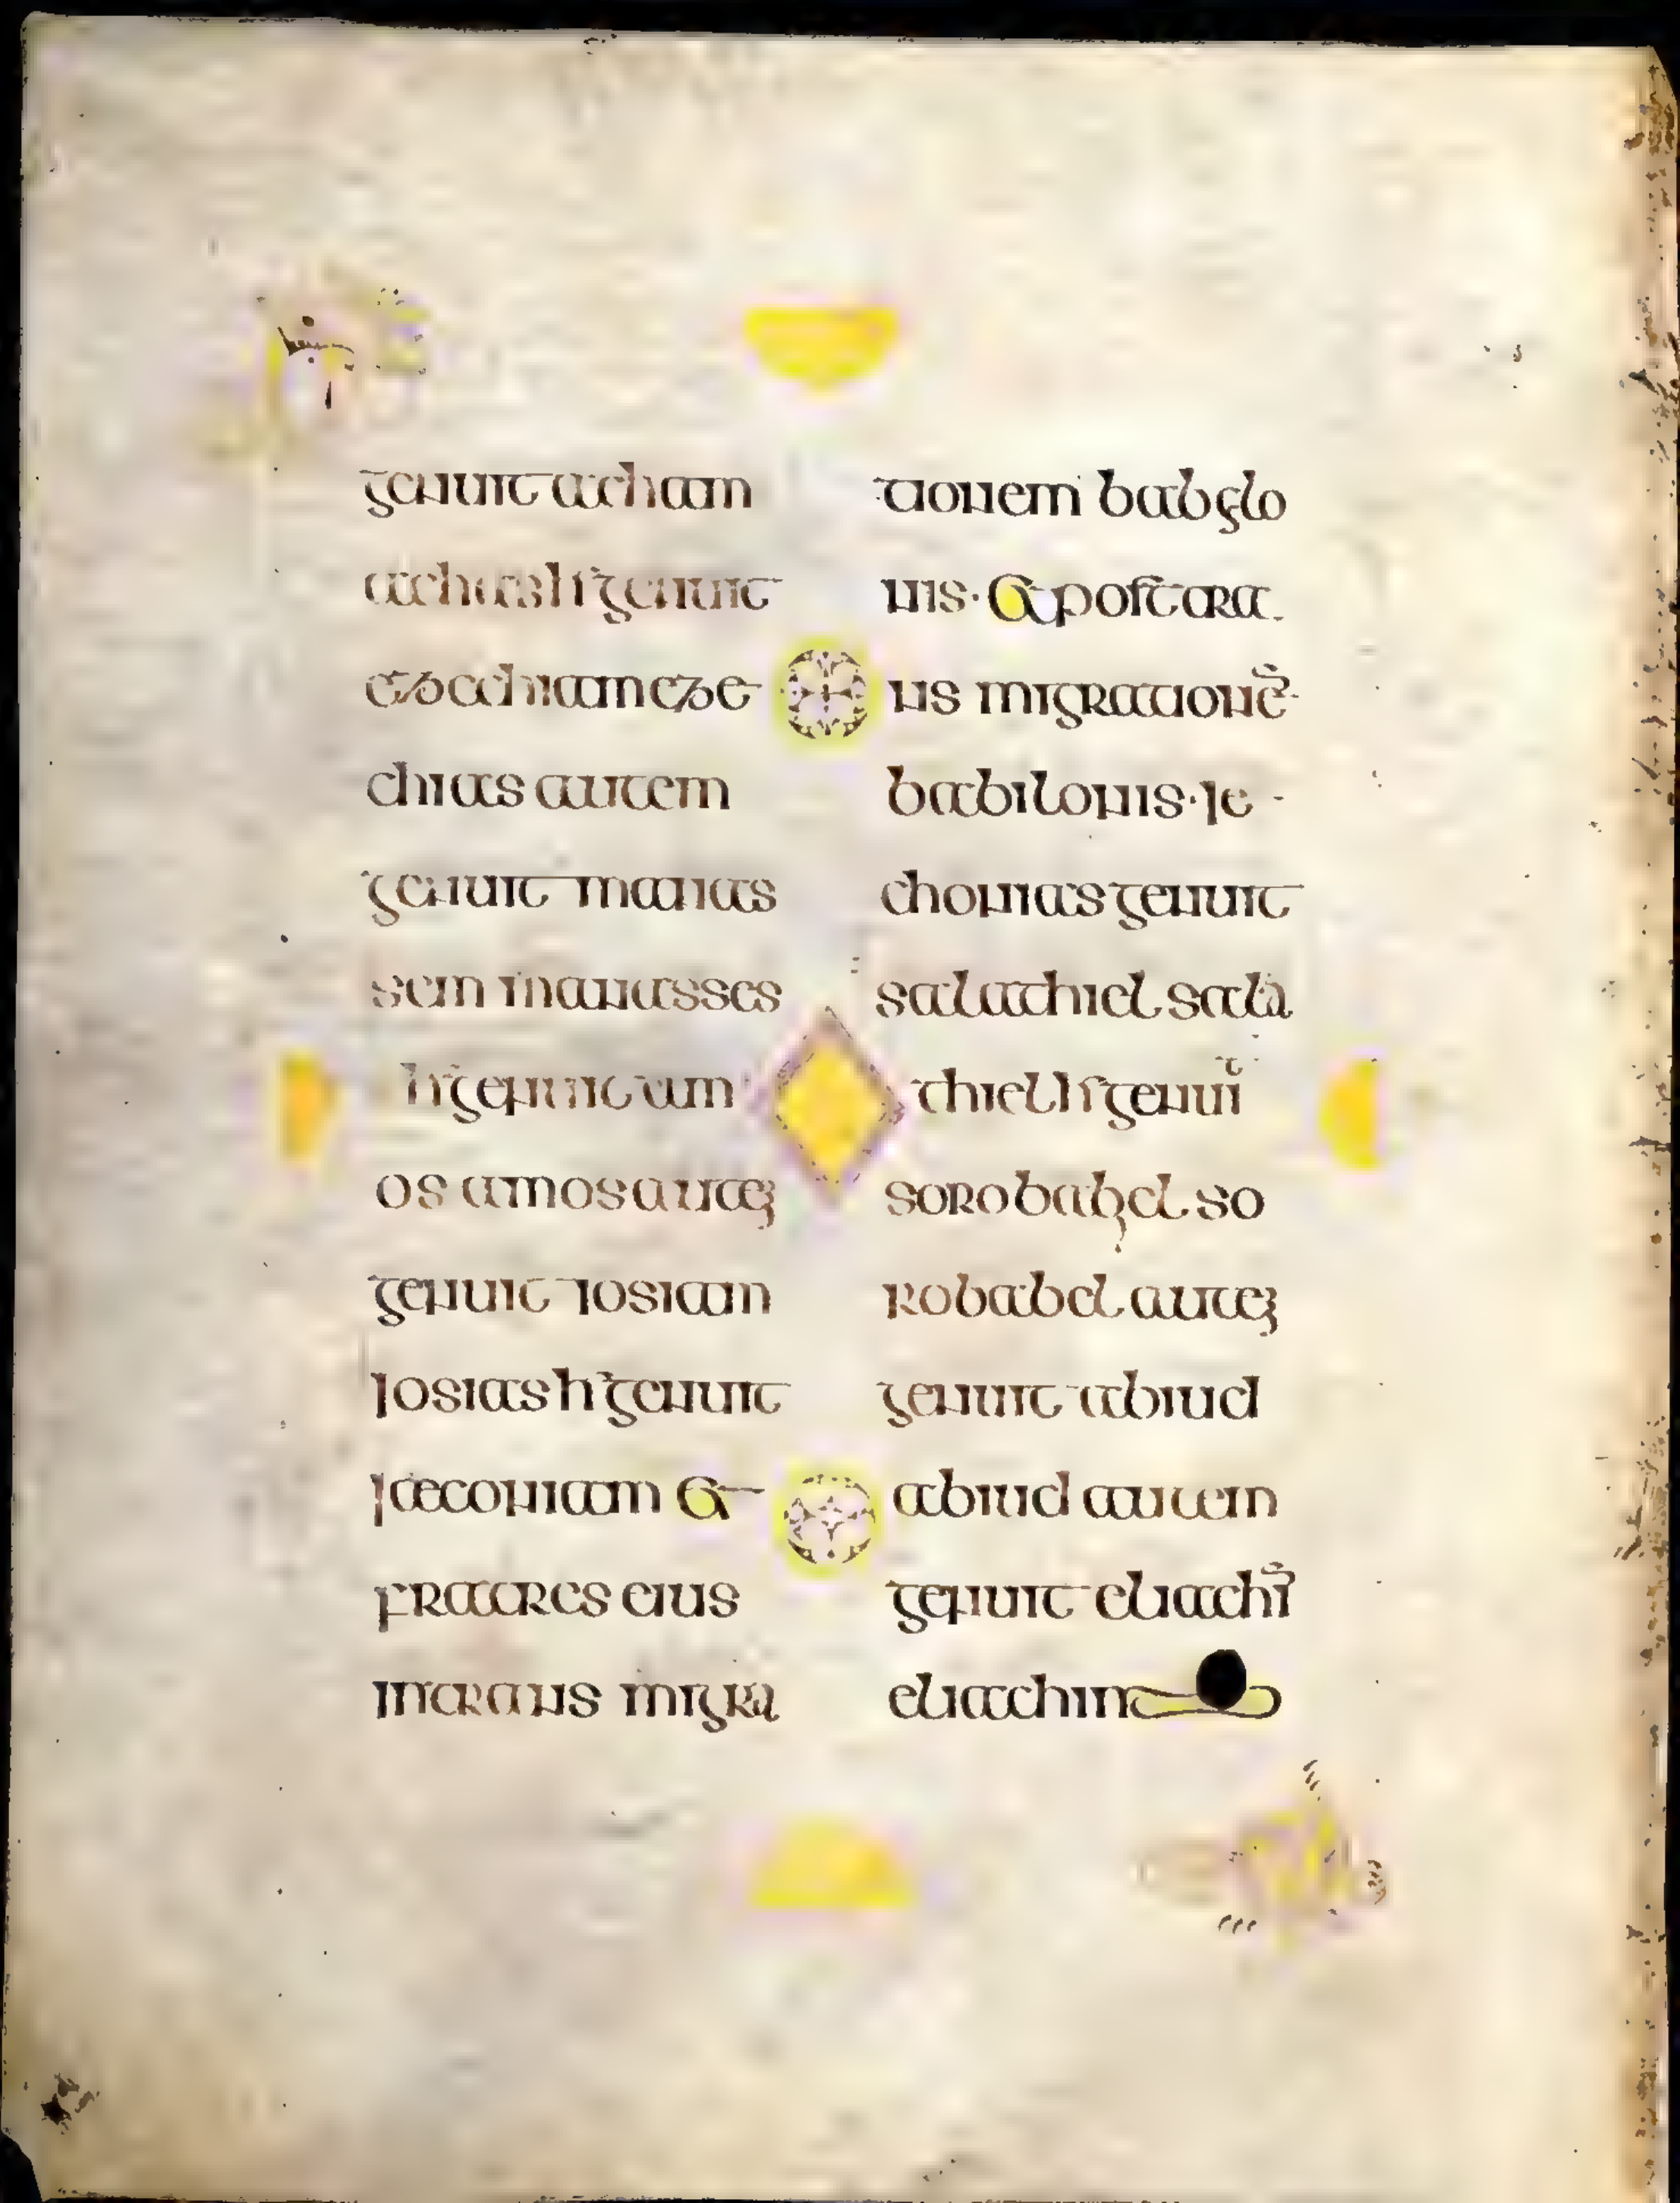 genuit acham
achas h̄ genuit
ezechiam eze
chias autem
genuit manas
sem manasses
h̄ genuit am
os amos auteꝫ
genuit iosiam
iosias h̄ genuit
iæconiam &
fratres eius
in trans migra
tionem babylo
nis · & post tra
ns migrationē
babilonis · ie
chonias genuit
salathiel sala
thiel h̄ genuiͭ
sorobabel so
robabel auteꝫ
genuit abiud
abiud autem
genuit eliachī
eliachin